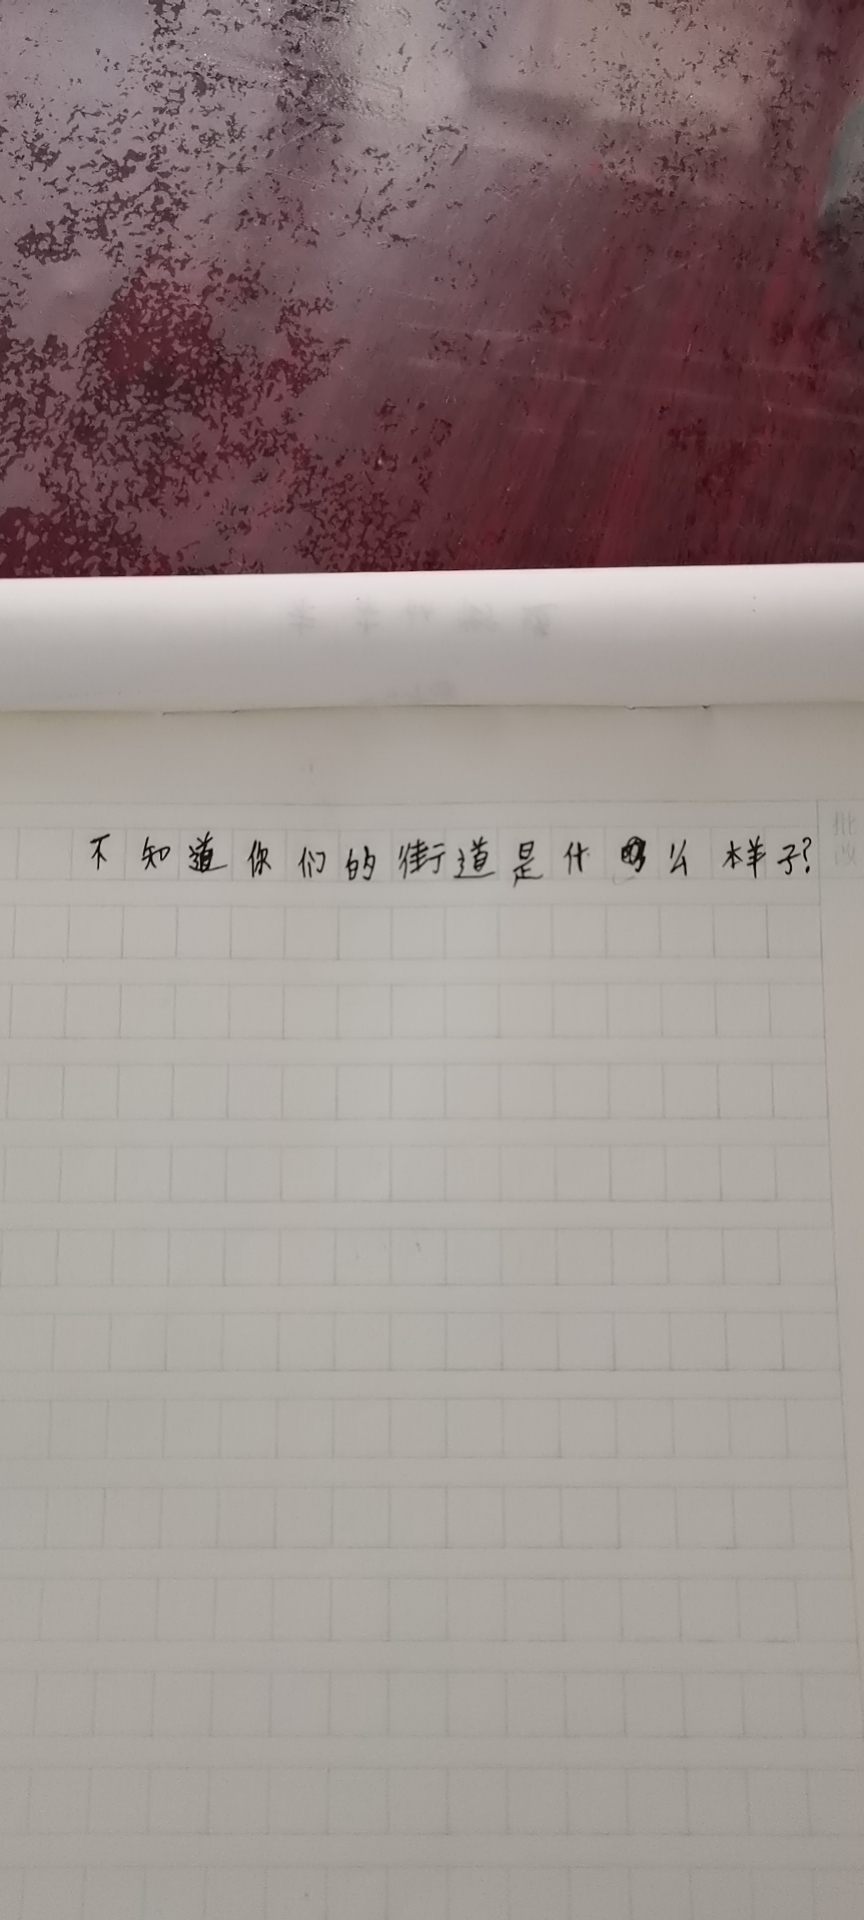 不知道你们的街道是什么样子?
批改